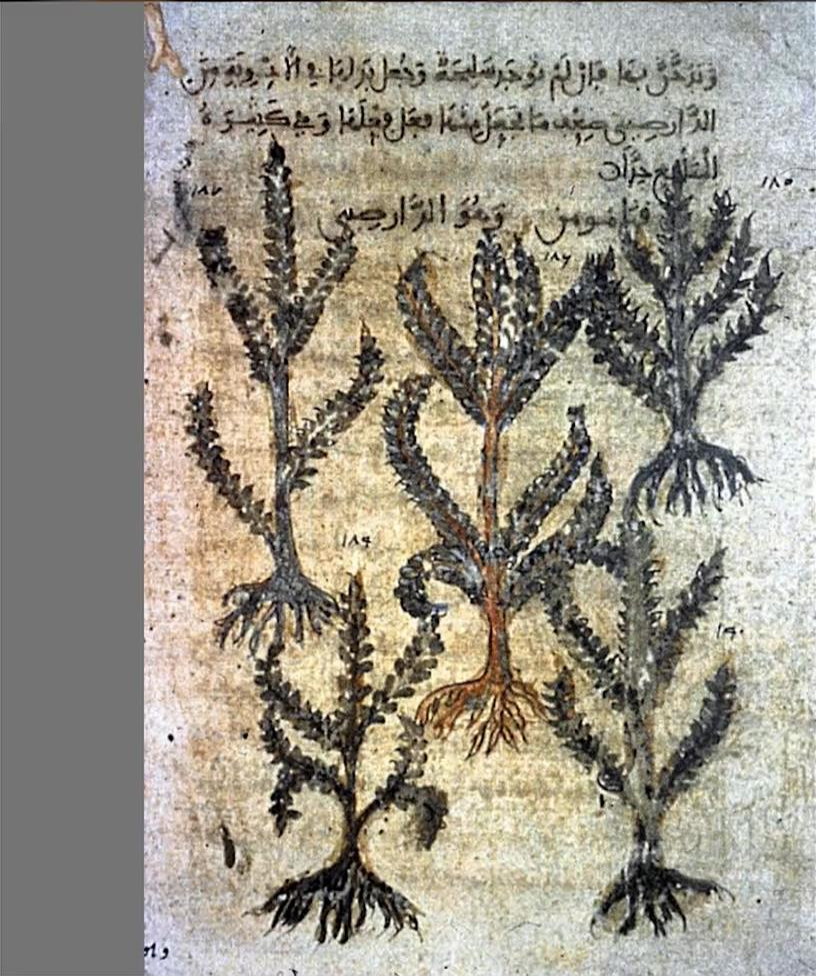 وتدخن بها فإن لم توجد سليخة وجعل بدلها في الأدوية من
الدارصيني ضعف ما يجعل منها فعل فعلها وهي كثيرة
المنافع جدًا
قنامومن وهو الدارصيني
١٨٥
١٨٧
١٨٩
١٩٠